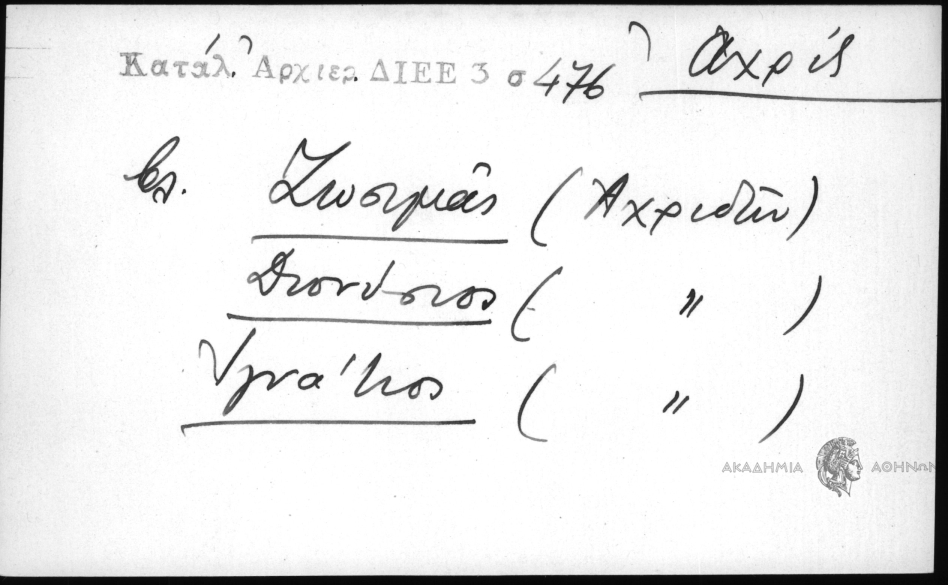 Κατάλ. Ἀρχιερ. ΔΙΕΕ 3 σ 476 Ἀχρίς
βλ. Ζωσιμᾶς (Ἀχριδῶν)
Διονύσιος ( " )
Ἰγνάτιος ( " )
ΑΚΑΔΗΜΙΑ ΑΘΗΝΩΝ